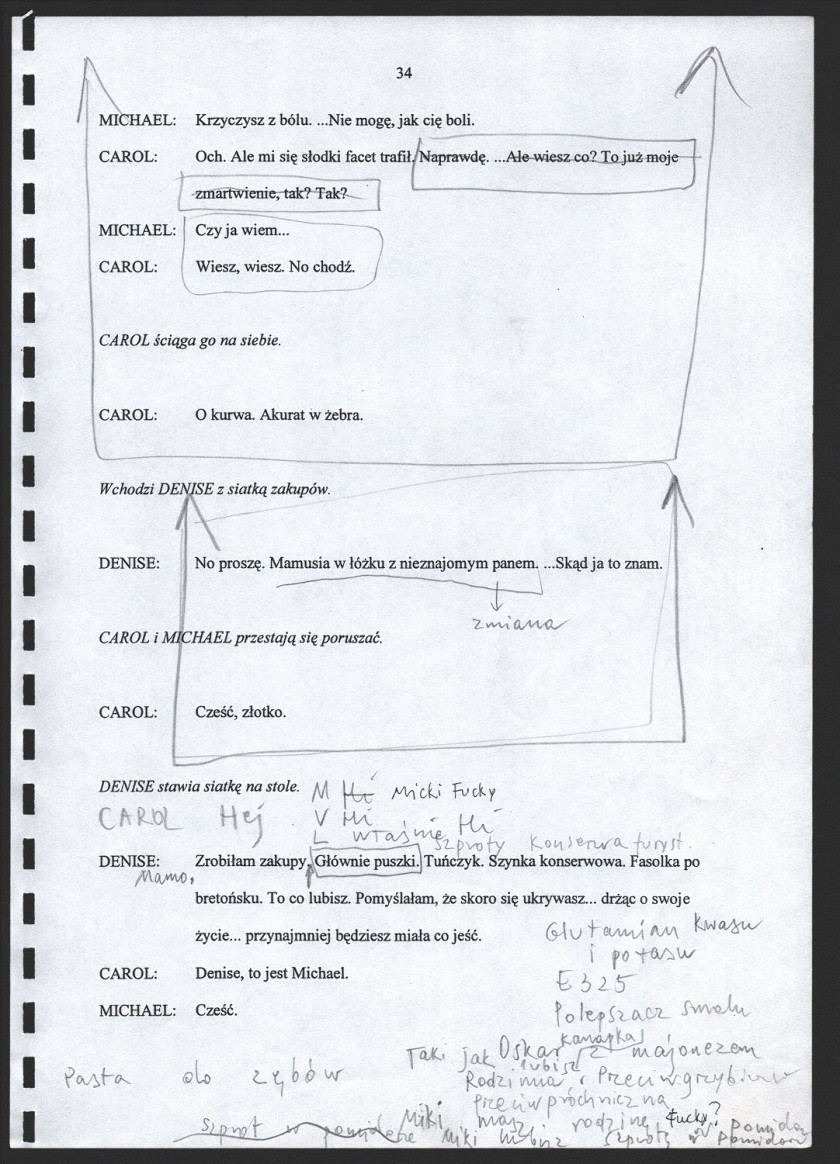 34
MICHAEL: Krzyczysz z bólu. ...Nie mogę, jak cię boli.
CAROL: Och. Ale mi się słodki facet trafił. Naprawdę. ...Ale wiesz co? To już moje
zmartwienie, tak? Tak?
MICHAEL: Czy ja wiem...
CAROL: Wiesz, wiesz. No chodź.
CAROL ściąga go na siebie.
CAROL: O kurwa. Akurat w żebra.
Wchodzi DENISE z siatką zakupów.
DENISE: No proszę. Mamusia w łóżku z nieznajomym panem. ...Skąd ja to znam.
zmiana
CAROL i MICHAEL przestają się poruszać.
CAROL: Cześć, złotko.
DENISE stawia siatkę na stole.
M Hi Micki Fucky
CAROL Hej
V Hi
L właśnie Hi
szproty konserwa turyst.
DENISE: Zrobiłam zakupy. Głównie puszki. Tuńczyk. Szynka konserwowa. Fasolka po
Mamo,
bretońsku. To co lubisz. Pomyślałam, że skoro się ukrywasz... drżąc o swoje
życie... przynajmniej będziesz miała co jeść.
Glutamian kwasu
i potasu
CAROL: Denise, to jest Michael.
E 325
MICHAEL: Cześć.
Polepszacz smaku
kanapka
Taki jak Oskar z majonezem
lubisz
Pasta do zębów
Rodzinna i Przeciwgrzybicza
przeciwpróchniczna
Miki masz rodzinę, Fucky?
szprot w pomidorze Miki lubisz szproty w pomidor